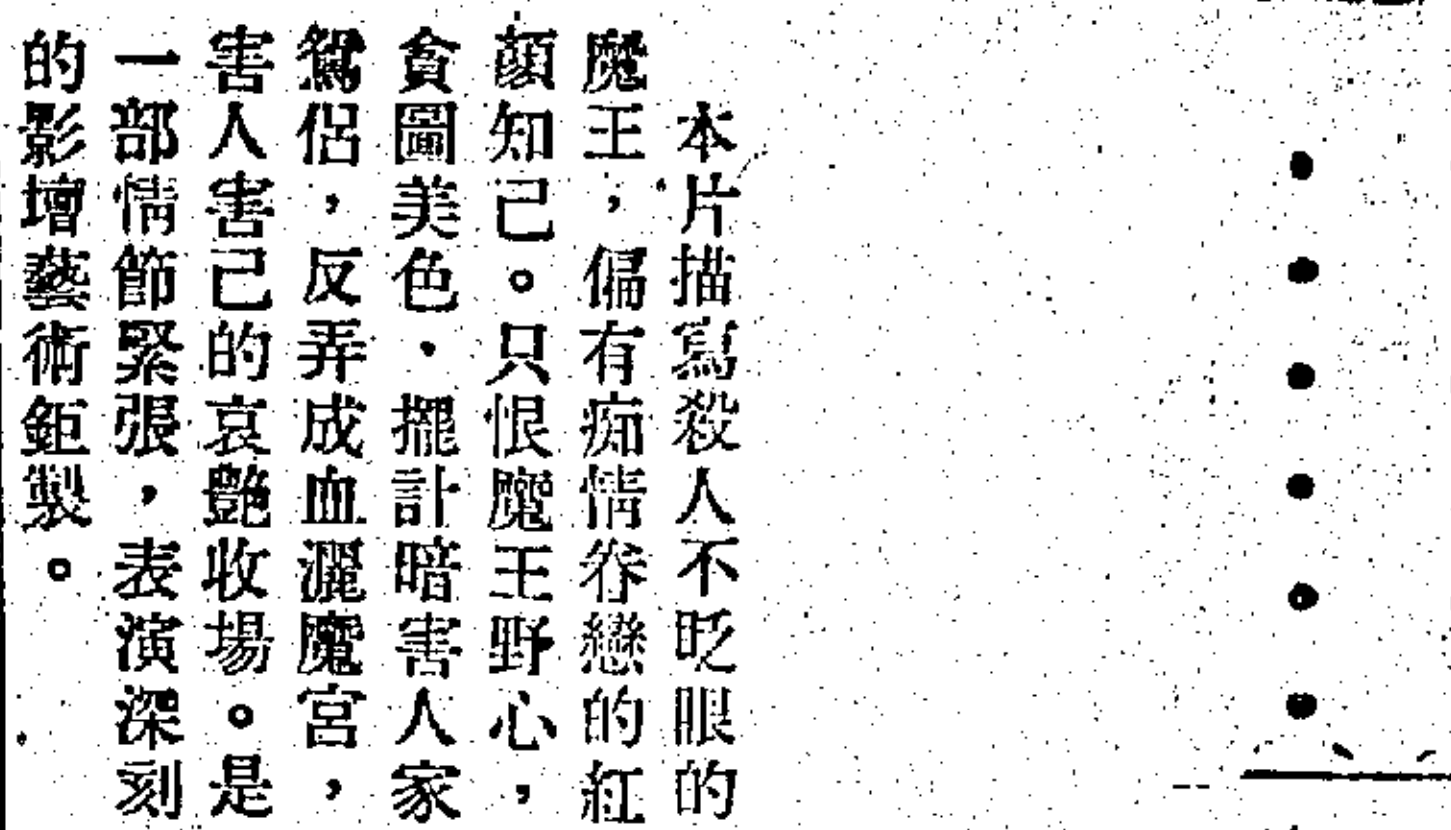 本片描寫殺人不眨眼的
魔王，偏有痴情眷戀的紅
顏知己。只恨魔王野心，
貪圖美色，擺計暗害人家
鴛侶，反弄成血灑魔宮，
害人害己的哀艷收場。是
一部情節緊張，表演深刻
的影壇藝術鉅製。